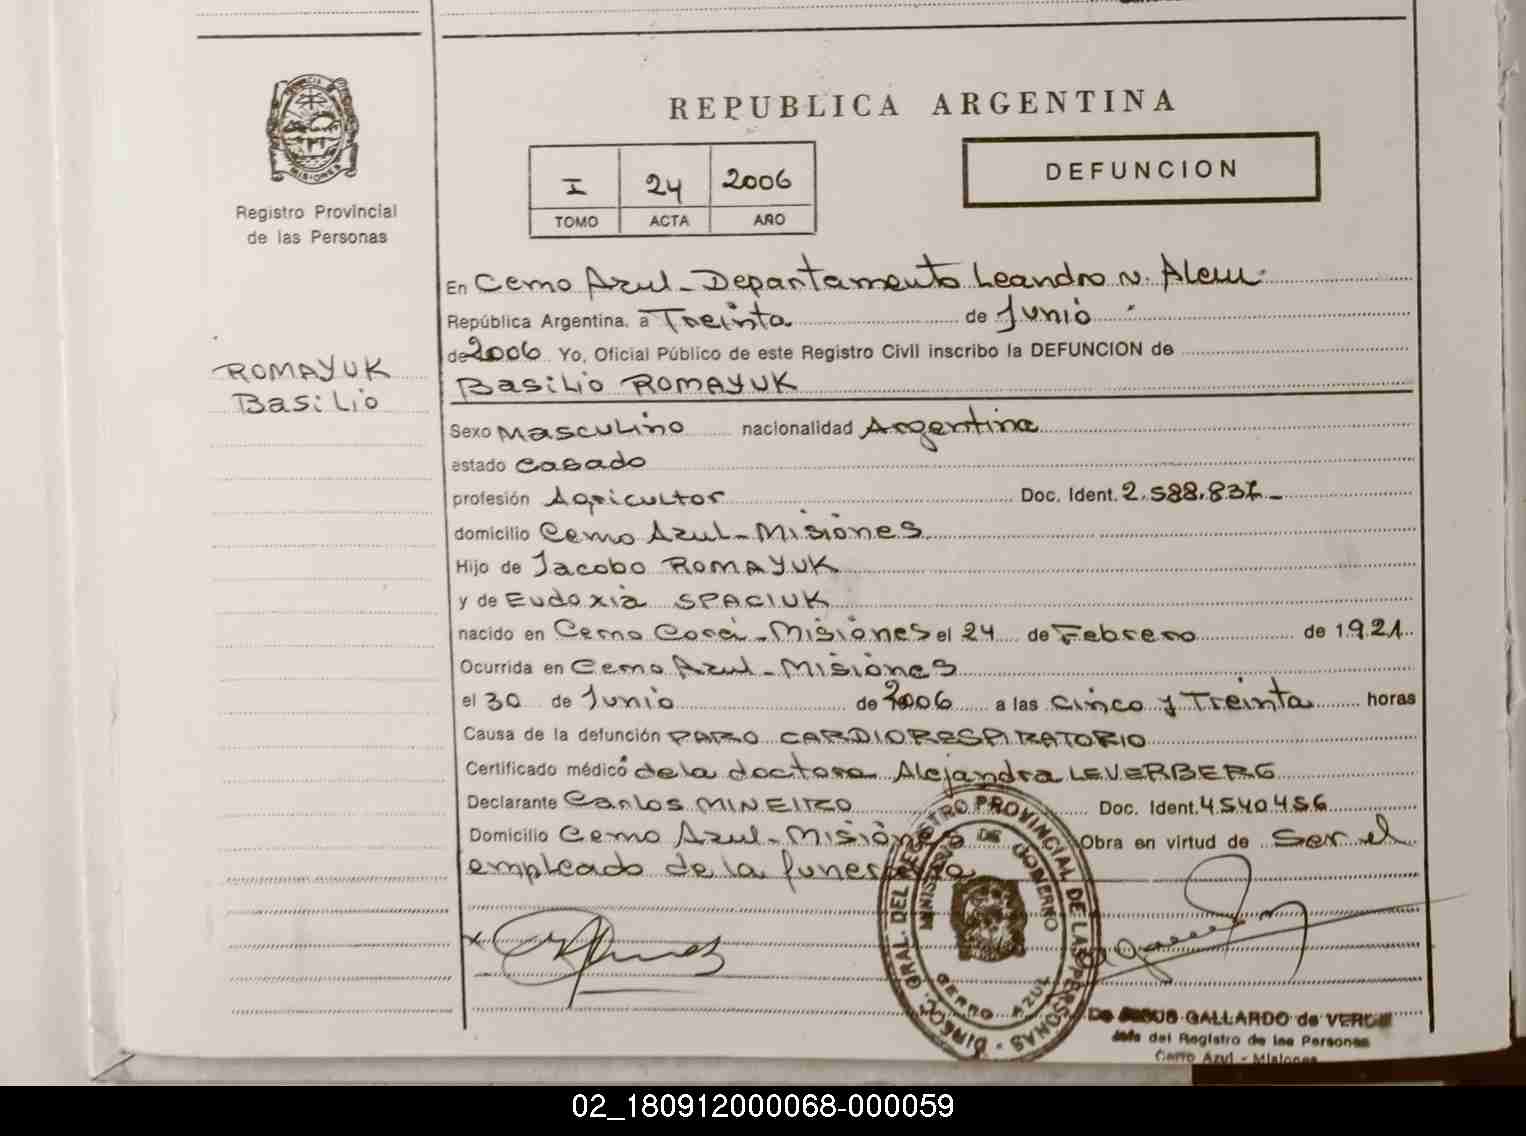 REPUBLICA ARGENTINA
DEFUNCION
I 24 2006
TOMO ACTA AÑO
PROVINCIA DE MISIONES
Registro Provincial
de las Personas
ROMAYUK
Basilio
En Cerro Azul - Departamento Leandro N. Alem
República Argentina, a Treinta de Junio
de 2006 Yo, Oficial Público de este Registro Civil inscribo la DEFUNCION de
Basilio ROMAYUK
Sexo Masculino nacionalidad Argentina
estado Casado
profesión Agricultor Doc. Ident. 2.588.837 -
domicilio Cerro Azul - Misiones
Hijo de Jacobo ROMAYUK
y de Eudoxia SPACIUK
nacido en Cerro Corá - Misiones el 24 de Febrero de 1921
Ocurrida en Cerro Azul - Misiones
el 30 de Junio de 2006 a las cinco y Treinta horas
Causa de la defunción PARO CARDIORESPIRATORIO
Certificado médico de la doctora Alejandra LEVERBERG
Declarante Carlos MINEIRO Doc. Ident. 4540456
Domicilio Cerro Azul - Misiones Obra en virtud de Ser el
empleado de la funeraria
DIRECC. GRAL. DEL REGISTRO PROVINCIAL DE LAS PERSONAS
MINISTERIO DE GOBIERNO
CERRO AZUL
GALLARDO de
Jefe del Registro de las Personas
Cerro Azul - Misiones
02_180912000068-000059